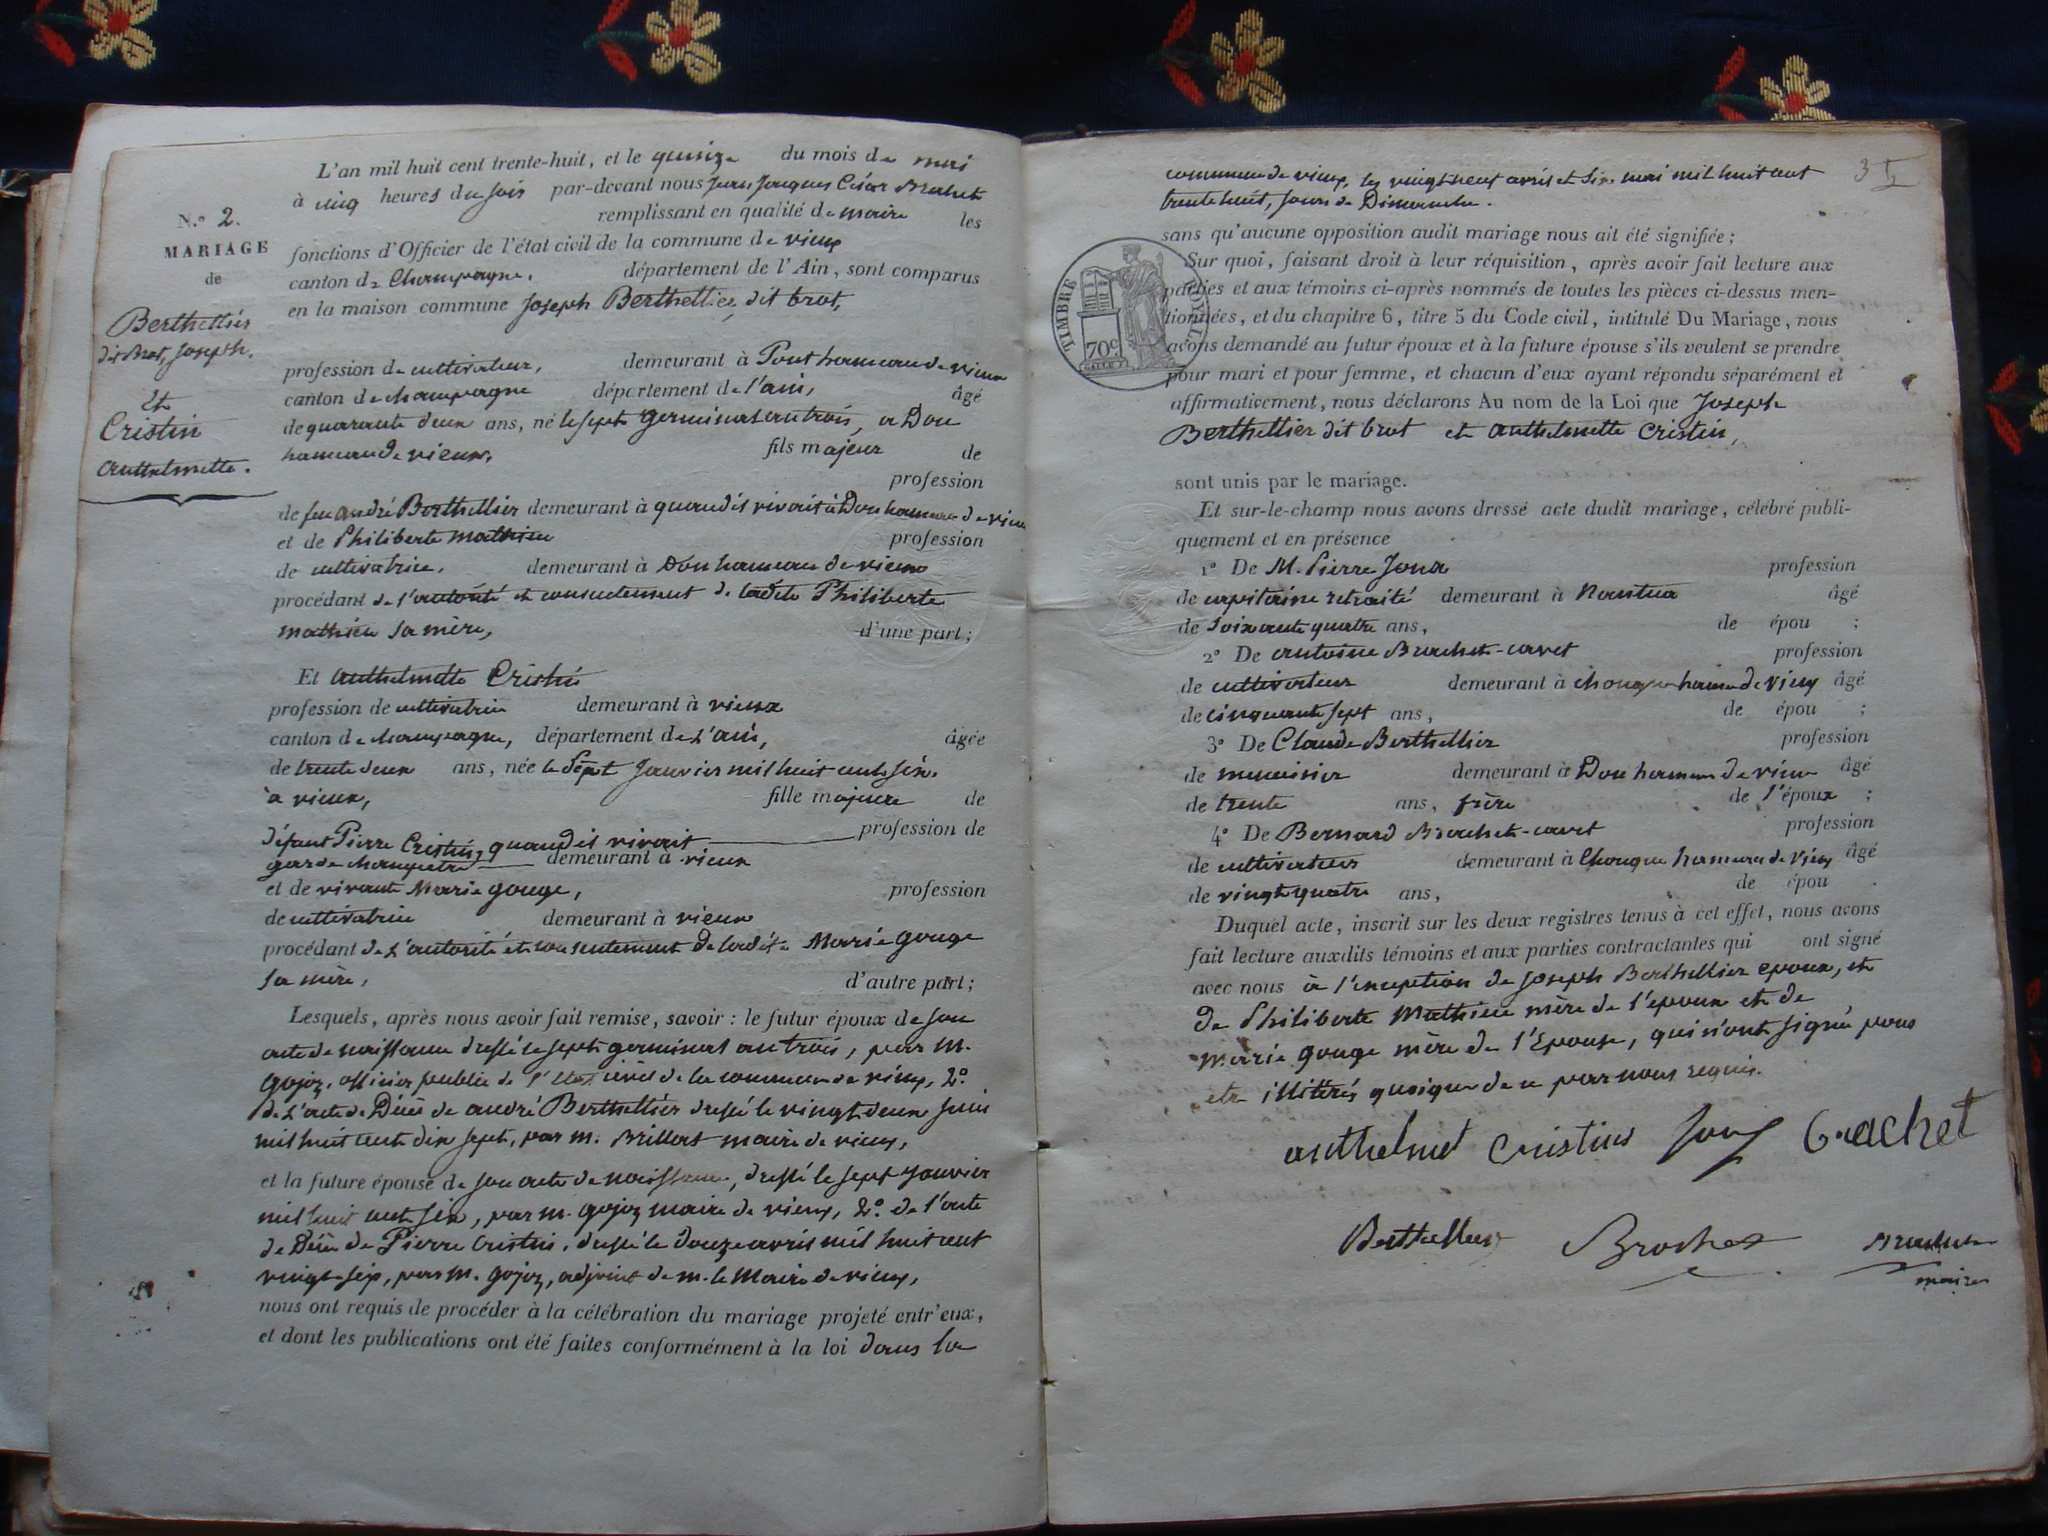 L'an mil huit cent trente-huit, et le quinze du mois de mai
à cinq heures du soir par-devant nous Jean Jacques César Brachet
N.º 2. remplissant en qualité de maire les
MARIAGE
de
Berthellier
dit Brot, Joseph.
et
Cristin
anthelmette.
fonctions d'Officier de l'état civil de la commune de vieux
canton de Champagne. département de l'Ain, sont comparus
en la maison commune Joseph Berthellier, dit brot,
profession de cultivateur, demeurant à Pont hameau de vieux
canton de champagne département de l'ain, âgé
de quarante deux ans, né le sept germinal an trois, à Don
hameau de vieux, fils majeur de
profession
de feu andré Berthellier demeurant à quand il vivait à Don hameau de vieux
et de Philiberte mathieu profession
de cultivatrice. demeurant à Don hameau de vieux
procédant de l'autorité et consentement de ladite Philiberte
mathieu sa mère, d'une part;
Et anthelmette Cristin
profession de cultivatrice demeurant à vieux
canton de champagne, département de l'ain, âgée
de trente deux ans, née le sept Janvier mil huit cent six.
à vieux, fille majeure de
défunt Pierre Cristin, quand il vivait profession de
garde champetre demeurant à vieux
et de vivante Marie gouge, profession
de cultivatrice demeurant à vieux
procédant de l'autorité et consentement de ladite Marie gouge
sa mère, d'autre part;
Lesquels, après nous avoir fait remise, savoir: le futur époux de son
acte de naissance dressé le sept germinal an trois, par M.
gojoz, officier public de l'état civil de la commune de vieux, 2.º
de l'acte de Décès de andré Berthellier dressé le vingt deux juin
mil huit cent dix sept, par m. Brillat maire de vieux,
et la future épouse de son acte de naissance, dressé le sept janvier
mil huit cent six, par m. gojoz maire de vieux, 2.º de l'acte
de Décès de Pierre Cristin, dressé le douze avril mil huit cent
vingt six, par m. gojoz, adjoint de m. le Maire de vieux,
nous ont requis de procéder à la célébration du mariage projeté entr'eux,
et dont les publications ont été faites conformément à la loi dans la
35
commune de vieux, les vingt neuf avril et six mai mil huit cent
trente huit, jours de Dimanche.
sans qu'aucune opposition audit mariage nous ait été signifiée;
Sur quoi, faisant droit à leur réquisition, après avoir fait lecture aux
parties et aux témoins ci-après nommés de toutes les pièces ci-dessus men-
tionnées, et du chapitre 6, titre 5 du Code civil, intitulé Du Mariage, nous
avons demandé au futur époux et à la future épouse s'ils veulent se prendre
pour mari et pour femme, et chacun d'eux ayant répondu séparément et
affirmativement, nous déclarons Au nom de la Loi que Joseph
Berthellier dit brot et anthelmette Cristin,
TIMBRE ROYAL
70ᶜ
sont unis par le mariage.
Et sur-le-champ nous avons dressé acte dudit mariage, célébré publi-
quement et en présence
1º De M. Pierre Joux profession
de capitaine retraité demeurant à Nantua âgé
de soixante quatre ans, de épou ;
2º De antoine Brachet-cavet profession
de cultivateur demeurant à chongne hameau de vieux âgé
de cinquante sept ans, de épou ;
3º De Claude Berthellier profession
de menuisier demeurant à Don hameau de vieux âgé
de trente ans, frère de l'époux ;
4º De Bernard Brachet-cavet profession
de cultivateur demeurant à Chongne hameau de vieux âgé
de vingt quatre ans, de épou .
Duquel acte, inscrit sur les deux registres tenus à cet effet, nous avons
fait lecture auxdits témoins et aux parties contractantes qui ont signé
avec nous à l'exception de Joseph Berthellier epoux, et
de Philiberte Mathieu mère de l'epoux et de
marie gouge mère de l'Epouse, qui n'ont signé pour
etre illitérés quoique de ce par nous requis.
anthelmet cristin Joux Brachet
Berthellier Brachet Brachet
maire